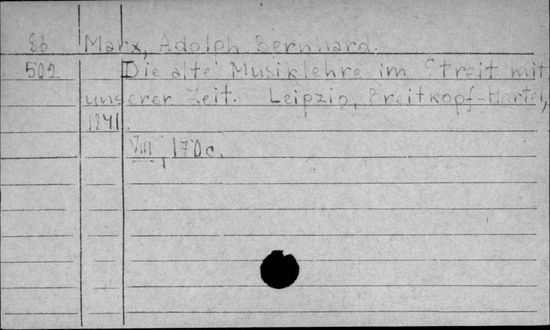 83 Marx, Adolph Bernhard.
502 Die alte Musiklehre im Streit mit
unserer Zeit. Leipzig, Breitkopf-Hartel,
1841.
VIII, 170c.